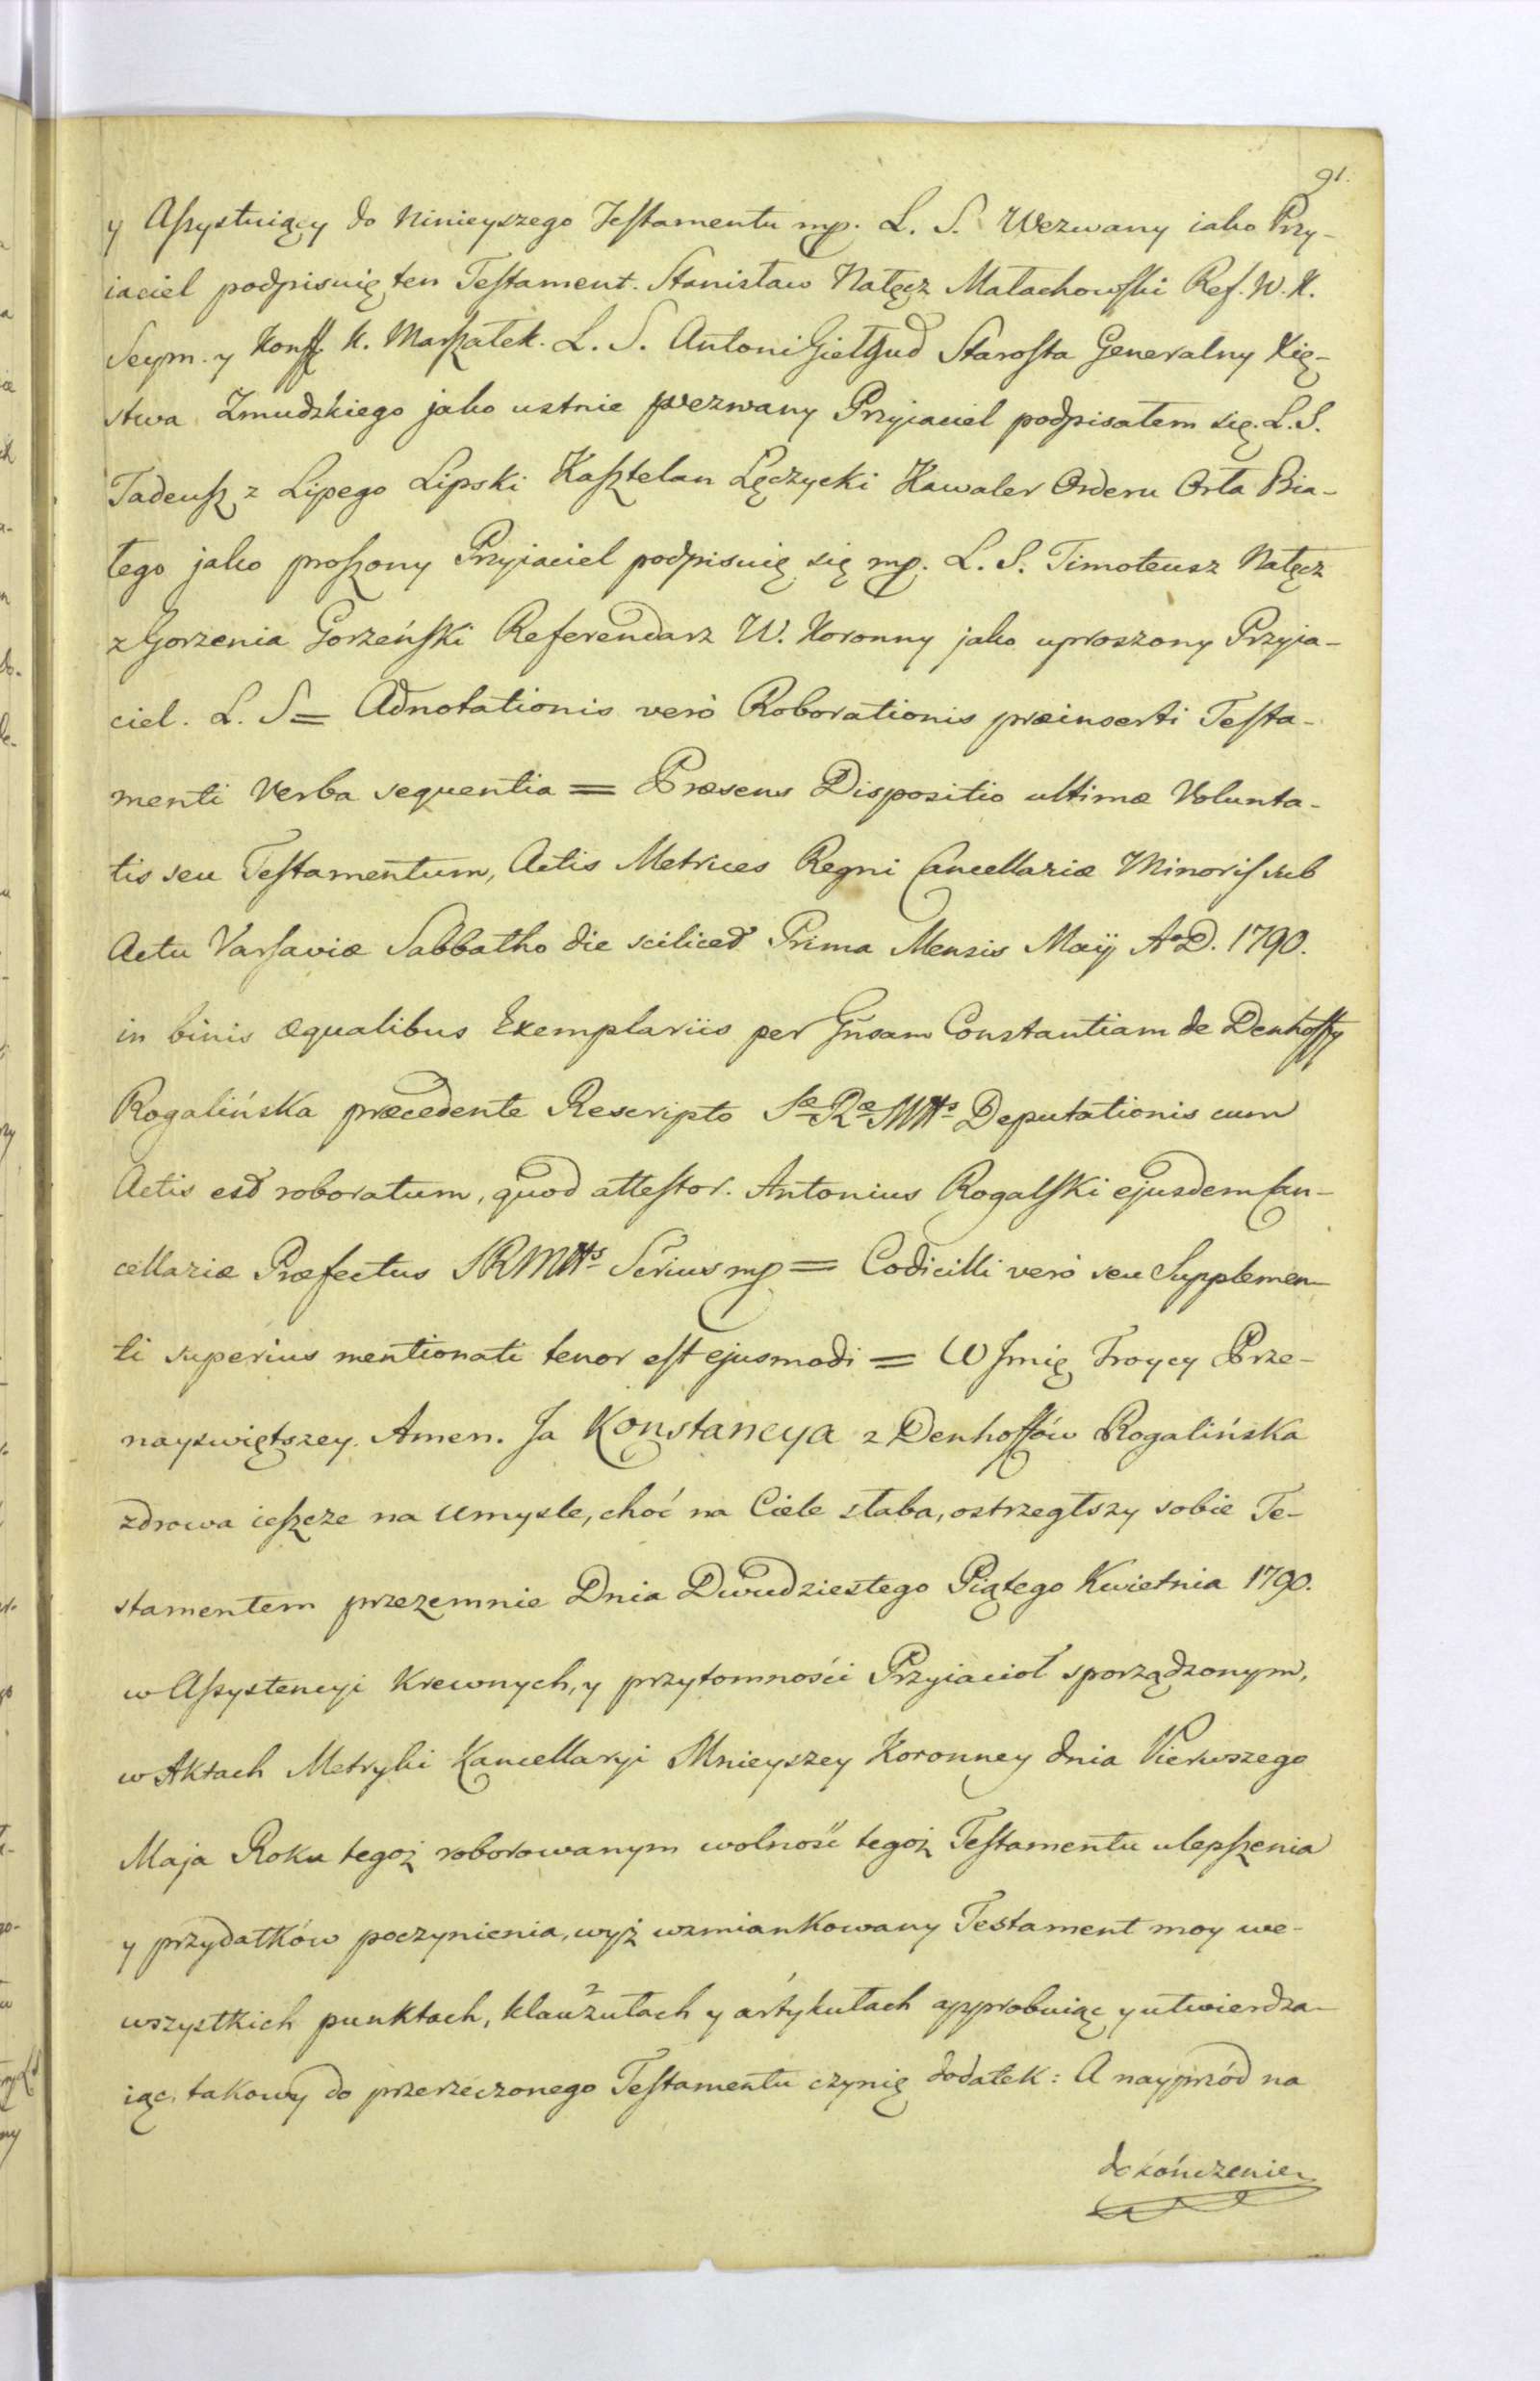 91.
y Assystuiący do Ninieyszego Testamentu mp. L. S. Wezwany iako Przy-
iaciel podpisuię ten Testament. Stanisław Nałęcz Małachowski Ref. W. K.
Seym. y Konff. K. Marszałek. L. S. Antoni Giełgud Starosta Generalny Xię-
stwa Zmudzkiego jako ustnie wezwany Przyiaciel podpisałem się. L. S.
Tadeusz z Lipego Lipski Kasztelan Lęczycki Kawaler Orderu Orła Bia-
łego jako proszony Przyiaciel podpisuię się mp. L. S. Timoteusz Nałęcz
z Gorzenia Gorzeński Referendarz W. Koronny jako uproszony Przyia-
ciel. L. S = Adnotationis verò Roborationis præinserti Testa-
menti Verba sequentia = Præsens Dispositio ultimæ Volunta-
tis seu Testamentum, Actis Metrices Regni Cancellariæ Minoris sub
Actu Varsaviæ Sabbatho die scilicet Prima Mensis Maij AoD. 1790.
in binis æqualibus Exemplariis per Gnsam Constantiam de Denhoffy
Rogalińska præcedente Rescripto Sæ Ræ Mttis Deputationis cum
Actis est roboratum, quod attestor. Antonius Rogalski ejusdem Can-
cellariæ Præfectus SRMttis Scrius mp = Codicilli verò seu Supplemen-
ti superius mentionati tenor est ejusmodi = W Jmię Troycy Prze-
nayswiętszey. Amen. Ja Konstancya z Denhoffów Rogalińska
zdrowa ieszcze na Umysle, choć na Ciele słaba, ostrzegłszy sobie Te-
stamentem przezemnie Dnia Dwudziestego Piątego Kwietnia 1790.
w Assystencyi Krewnych, y przytomności Przyiacioł sporządzonym,
w Aktach Metryki Kancellaryi Mnieyszey Koronney dnia Pierwszego
Maja Roku tegoż roborowanym wolność tegoż Testamentu ulepszenia
y przydatków poczynienia, wyż wzmiankowany Testament moy we-
wszystkich punktach, klauzułach y artykułach approbuiąc y utwierdza-
iąc, takowy do przerzeczonego Testamentu czynię dodatek: A nayprzód na
dokończenie